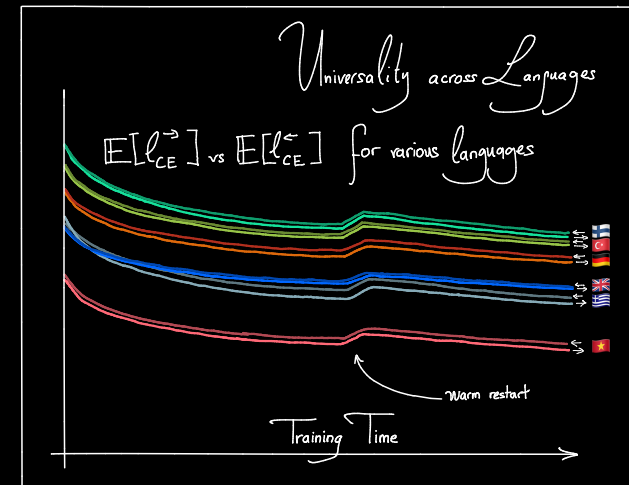 Universality across Languages
𝔼[ℓ→CE] vs 𝔼[ℓ←CE] for various languages
warm restart
Training Time